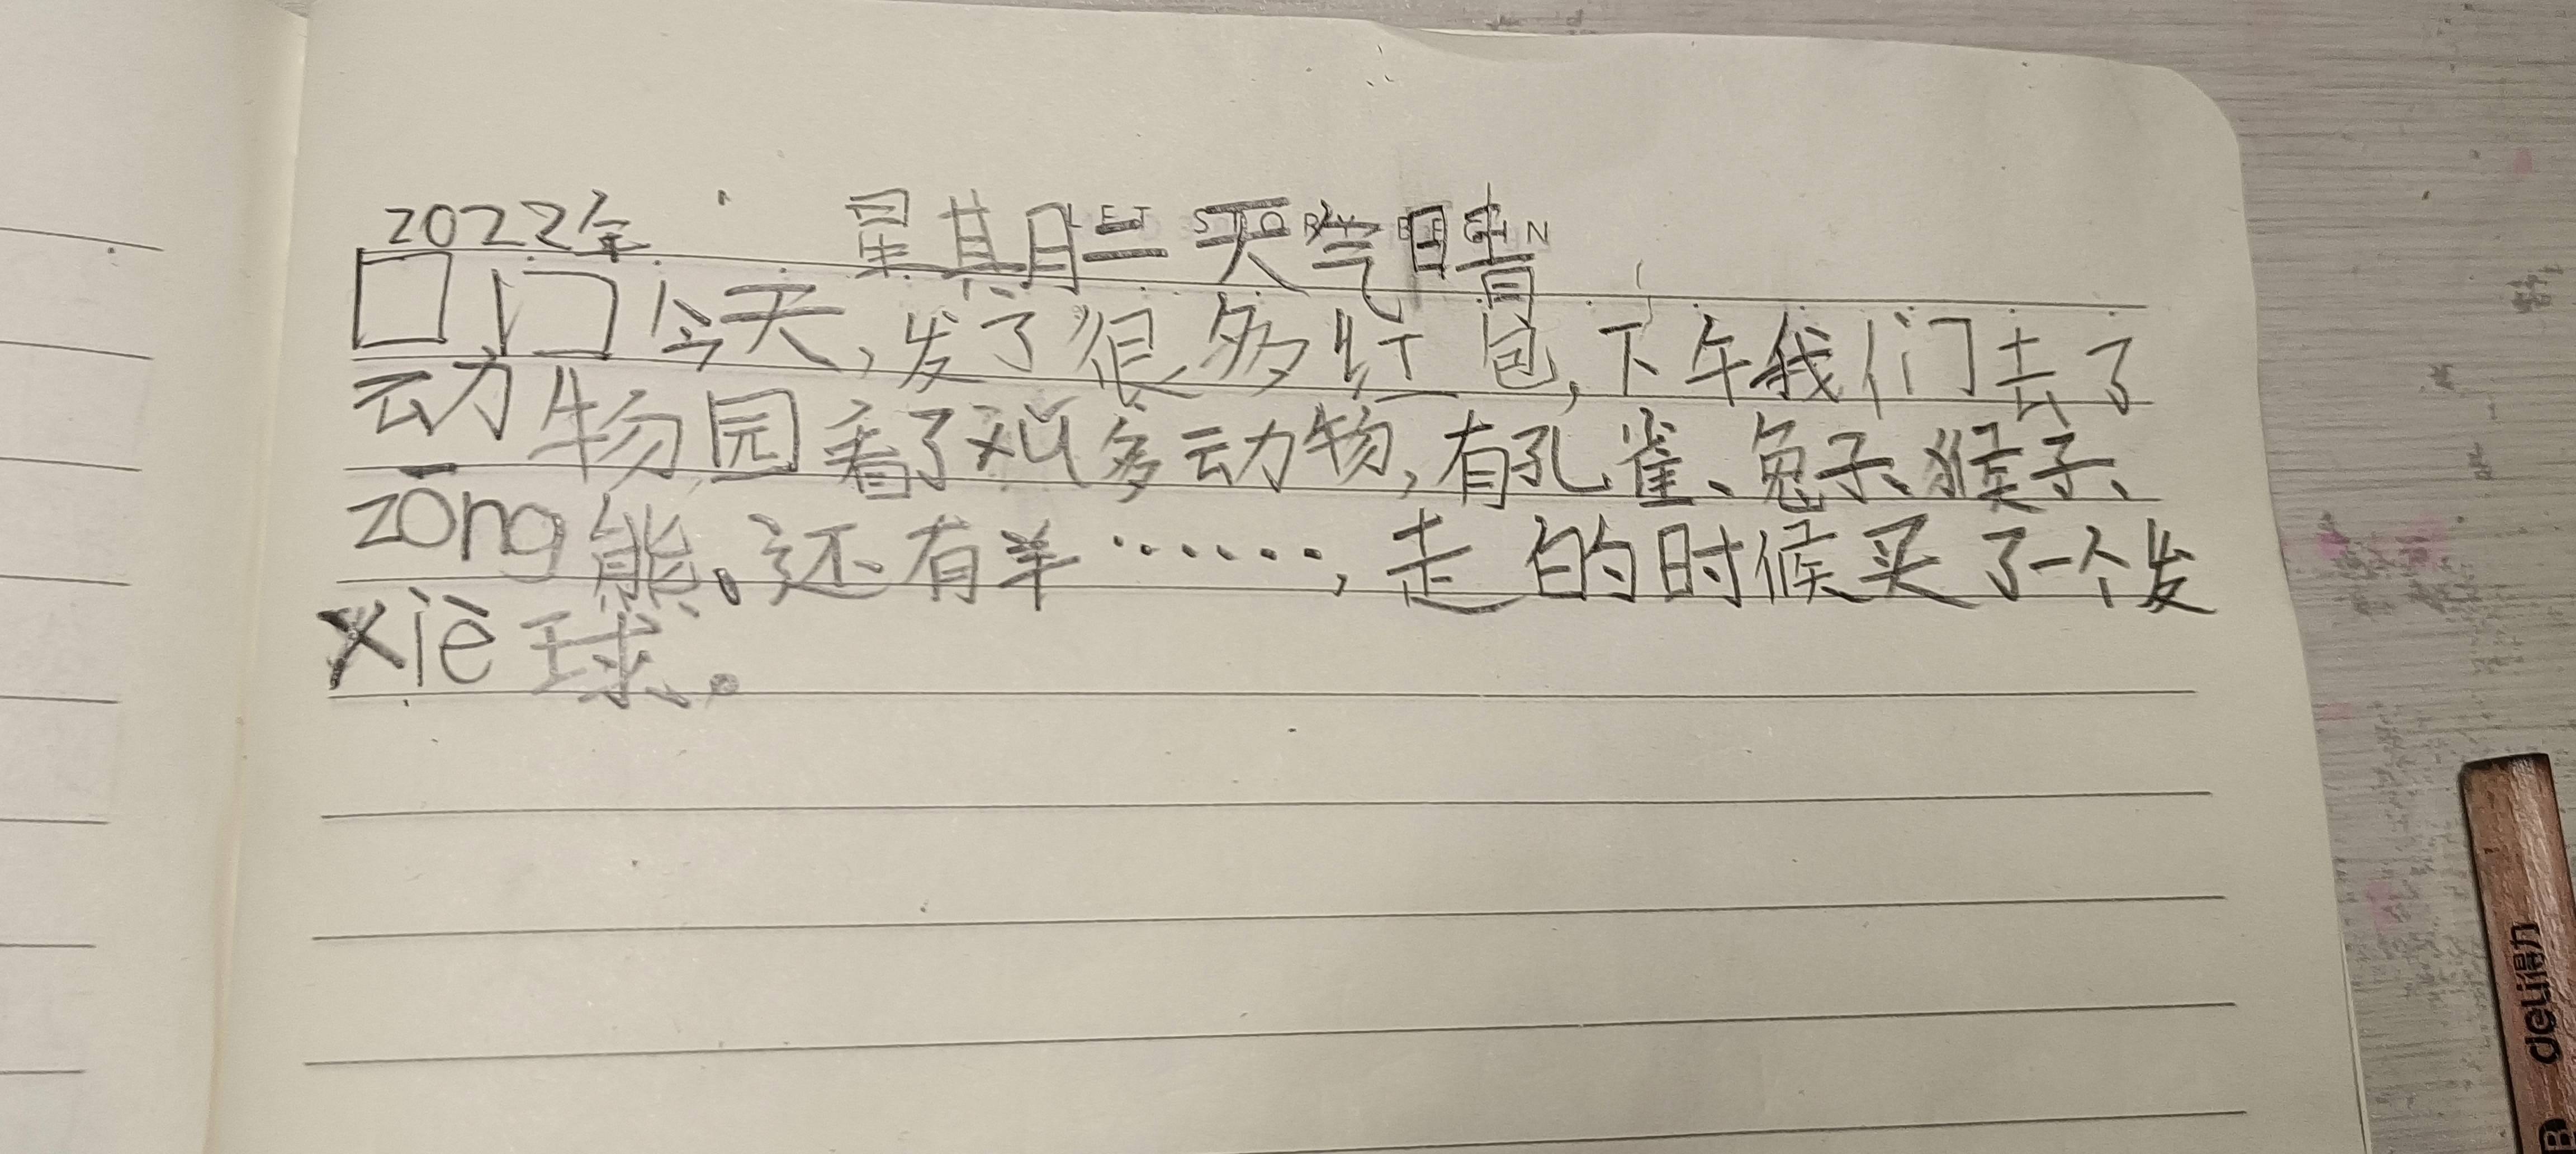 LET STORY BEGIN
2022年 星期三 天气晴
今天,发了很多红包,下午我们去了
动物园看了xǔ多动物,有孔雀、兔子、猴子、
zōng能、还有羊……,走的时候买了一个发
xiè球。
deli得力
B